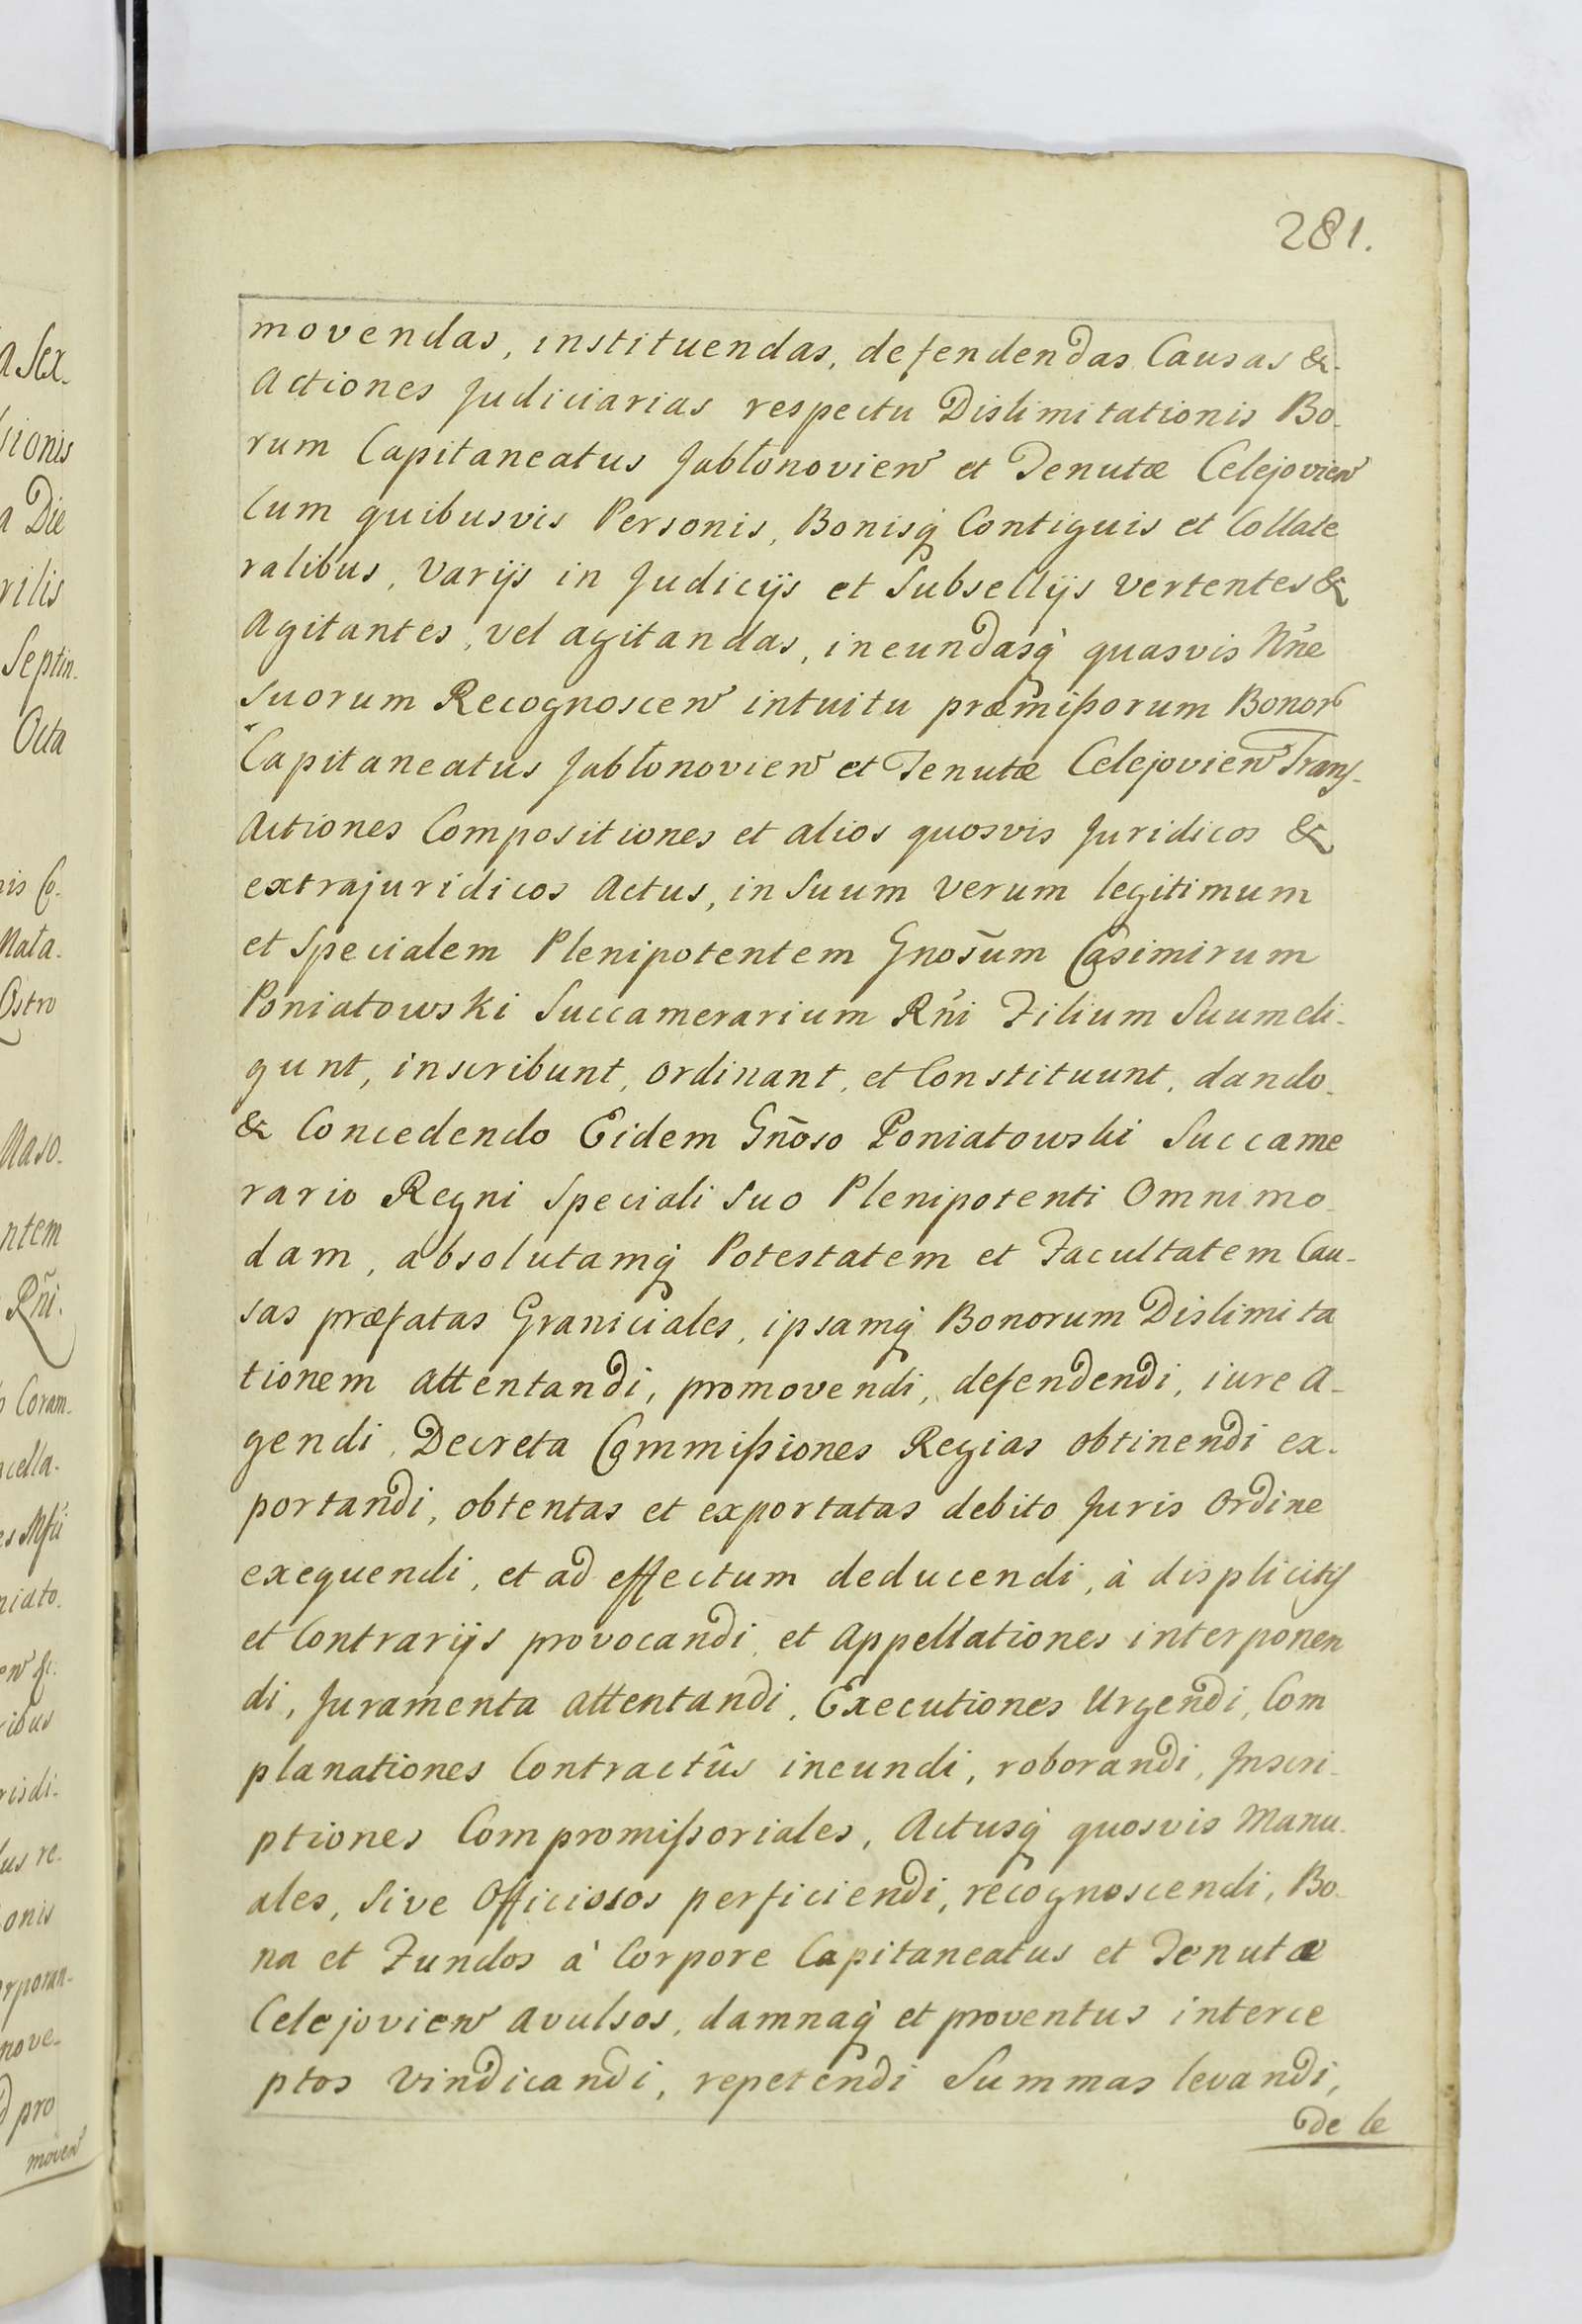 281.
movendas, instituendas, defendendas Causas &
Actiones Judiciarias respectu Dislimitationis Bo-
rum Capitaneatus Jabłonovien et Tenutæ Celejovien
Cum quibusvis Personis, Bonisq Contiguis et Collate
ralibus, Varijs in Judicijs et Subsellijs vertentes &
Agitantes, vel agitandas, ineundasq quasvis Nñe
suorum Recognoscen intuitu præmißorum Bonor
Capitaneatus Jabłonovien et Tenutæ Celejovien Trans-
Actiones Compositiones et alios quosvis Juridicos &
extrajuridicos Actus, in Suum verum legitimum
et Specialem Plenipotentem Gnosum Casimirum
Poniatowski Succamerarium Rñi Filium Suum eli-
gunt, inscribunt, ordinant, et Constituunt, dando
& Concedendo Eidem Gñoso Poniatowski Succame
rario Regni Speciali Suo Plenipotenti Omnimo
dam, absolutamq Potestatem et Facultatem Cau-
sas præfatas Graniciales, ipsamq Bonorum Dislimita
tionem attentandi, promovendi, defendendi, iure A-
gendi, Decreta Commißiones Regias obtinendi ex-
portandi, obtentas et exportatas debito Juris Ordine
exequendi, et ad effectum deducendi, à displicitis
et Contrarijs provocandi, et Appellationes interponen
di, Juramenta attentandi, Executiones Urgendi, Com
planationes Contractûs ineundi, roborandi, Inscri-
ptiones Compromißoriales, Actusq quosvis Manu-
ales, Sive Officiosos perficiendi, recognoscendi, Bo-
na et Fundos à Corpore Capitaneatus et Tenutæ
Celejovien avulsos, damnaq et proventus interce
ptos Vindicandi, repetendi Summas levandi,
de le